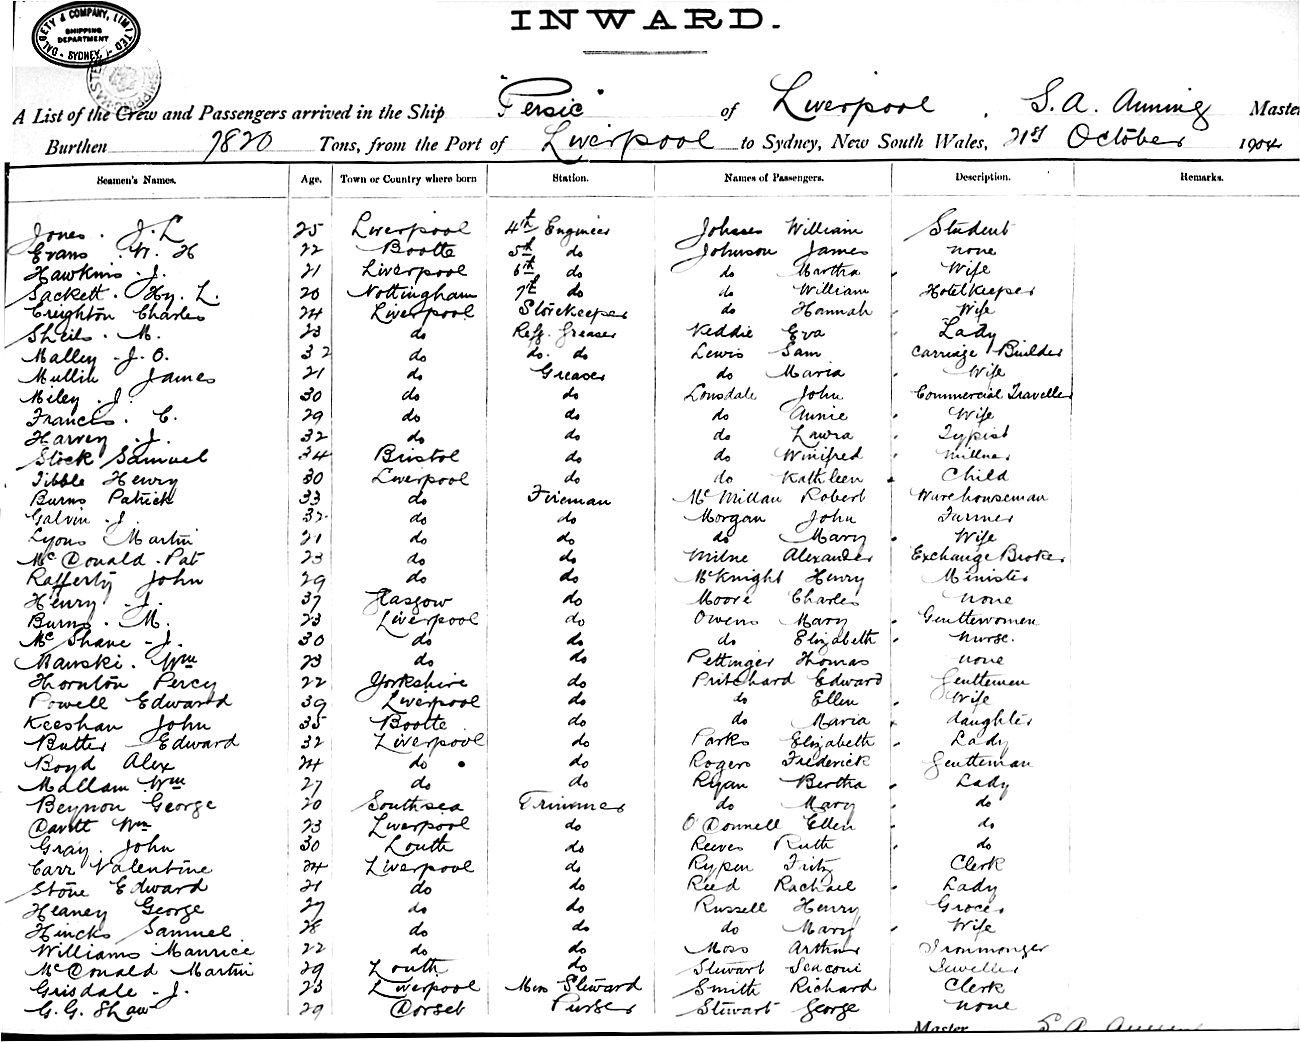 DALGETY & COMPANY, LIMITED
SHIPPING DEPARTMENT
SYDNEY
INWARD.
A List of the Crew and Passengers arrived in the Ship "Persic" of Liverpool, S. A. Anning Master
Burthen 7820 Tons, from the Port of Liverpool to Sydney, New South Wales, 21st October 1904
Seamen's Names. Age. Town or Country where born Station. Names of Passengers. Description. Remarks.
Jones. J. L 25 Liverpool 4th Engineer William Student
Evans W. H 22 Bootle 5th do Johnson James none
Hawkins. J. 21 Liverpool 6th do do Martha Wife
Sackett. Hy. L. 20 Nottingham 7th do do William Hotelkeeper
Creighton Charles 24 Liverpool Storekeeper do Hannah Wife
Sheils. M. 23 do Refg. Greaser Keddie Eva Lady
Malley. J. O. 32 do do. do Lewis Sam Carriage Builder
Mullin James 21 do Greaser do Maria Wife
Miley. J. 30 do do Lonsdale John Commercial Traveller
Francis. C. 29 do do do Annie Wife
Harvey. J. 32 do do do Laura Typist
Stock Samuel 34 Bristol do do Winifred Milliner
Tibble Henry 30 Liverpool do do Kathleen Child
Burns Patrick 33 do Fireman McMillan Robert Warehouseman
Galvin. J. 32 do do Morgan John Farmer
Lyons Martin 21 do do do Mary Wife
McDonald. Pat 23 do do Milne Alexander Exchange Broker
Rafferty John 29 do do McKnight Henry Minister
Henry. J. 37 Glasgow do Moore Charles none
Burns. M. 23 Liverpool do Owens Mary Gentlewomen
McShane. J. 30 do do do Elizabeth Nurse.
Manski. Wm 23 do do Pettinger Thomas none
Thornton Percy 22 Yorkshire do Pritchard Edward Gentlemen
Powell Edward 39 Liverpool do do Ellen Wife
Keeshan John 35 Bootle do do Maria daughter
Butter Edward 32 Liverpool do Parks Elizabeth Lady
Boyd Alex 24 do do Rogers Frederick Gentleman
Mallam Wm 27 do do Ryan Bertha Lady
Beynon George 20 Southsea Trimmer do Mary do
Davitt Wm 23 Liverpool do O'Donnell Ellen do
Gray. John 30 Louth do Reeves Ruth do
Carr Valentine 24 Liverpool do Rypen Fritz Clerk
Stone Edward 21 do do Reed Rachael Lady
Heaney George 27 do do Russell Henry Grocer
Hincks Samuel 28 do do do Mary Wife
Williams Maurice 22 do do Moss Arthur Ironmonger
McDonald Martin 29 Louth do Stewart Jeweller
Grisdale. J. 23 Liverpool Mess Steward Smith Richard Clerk
G. G. Shaw 29 Dorset Purser Stewart George none
Master